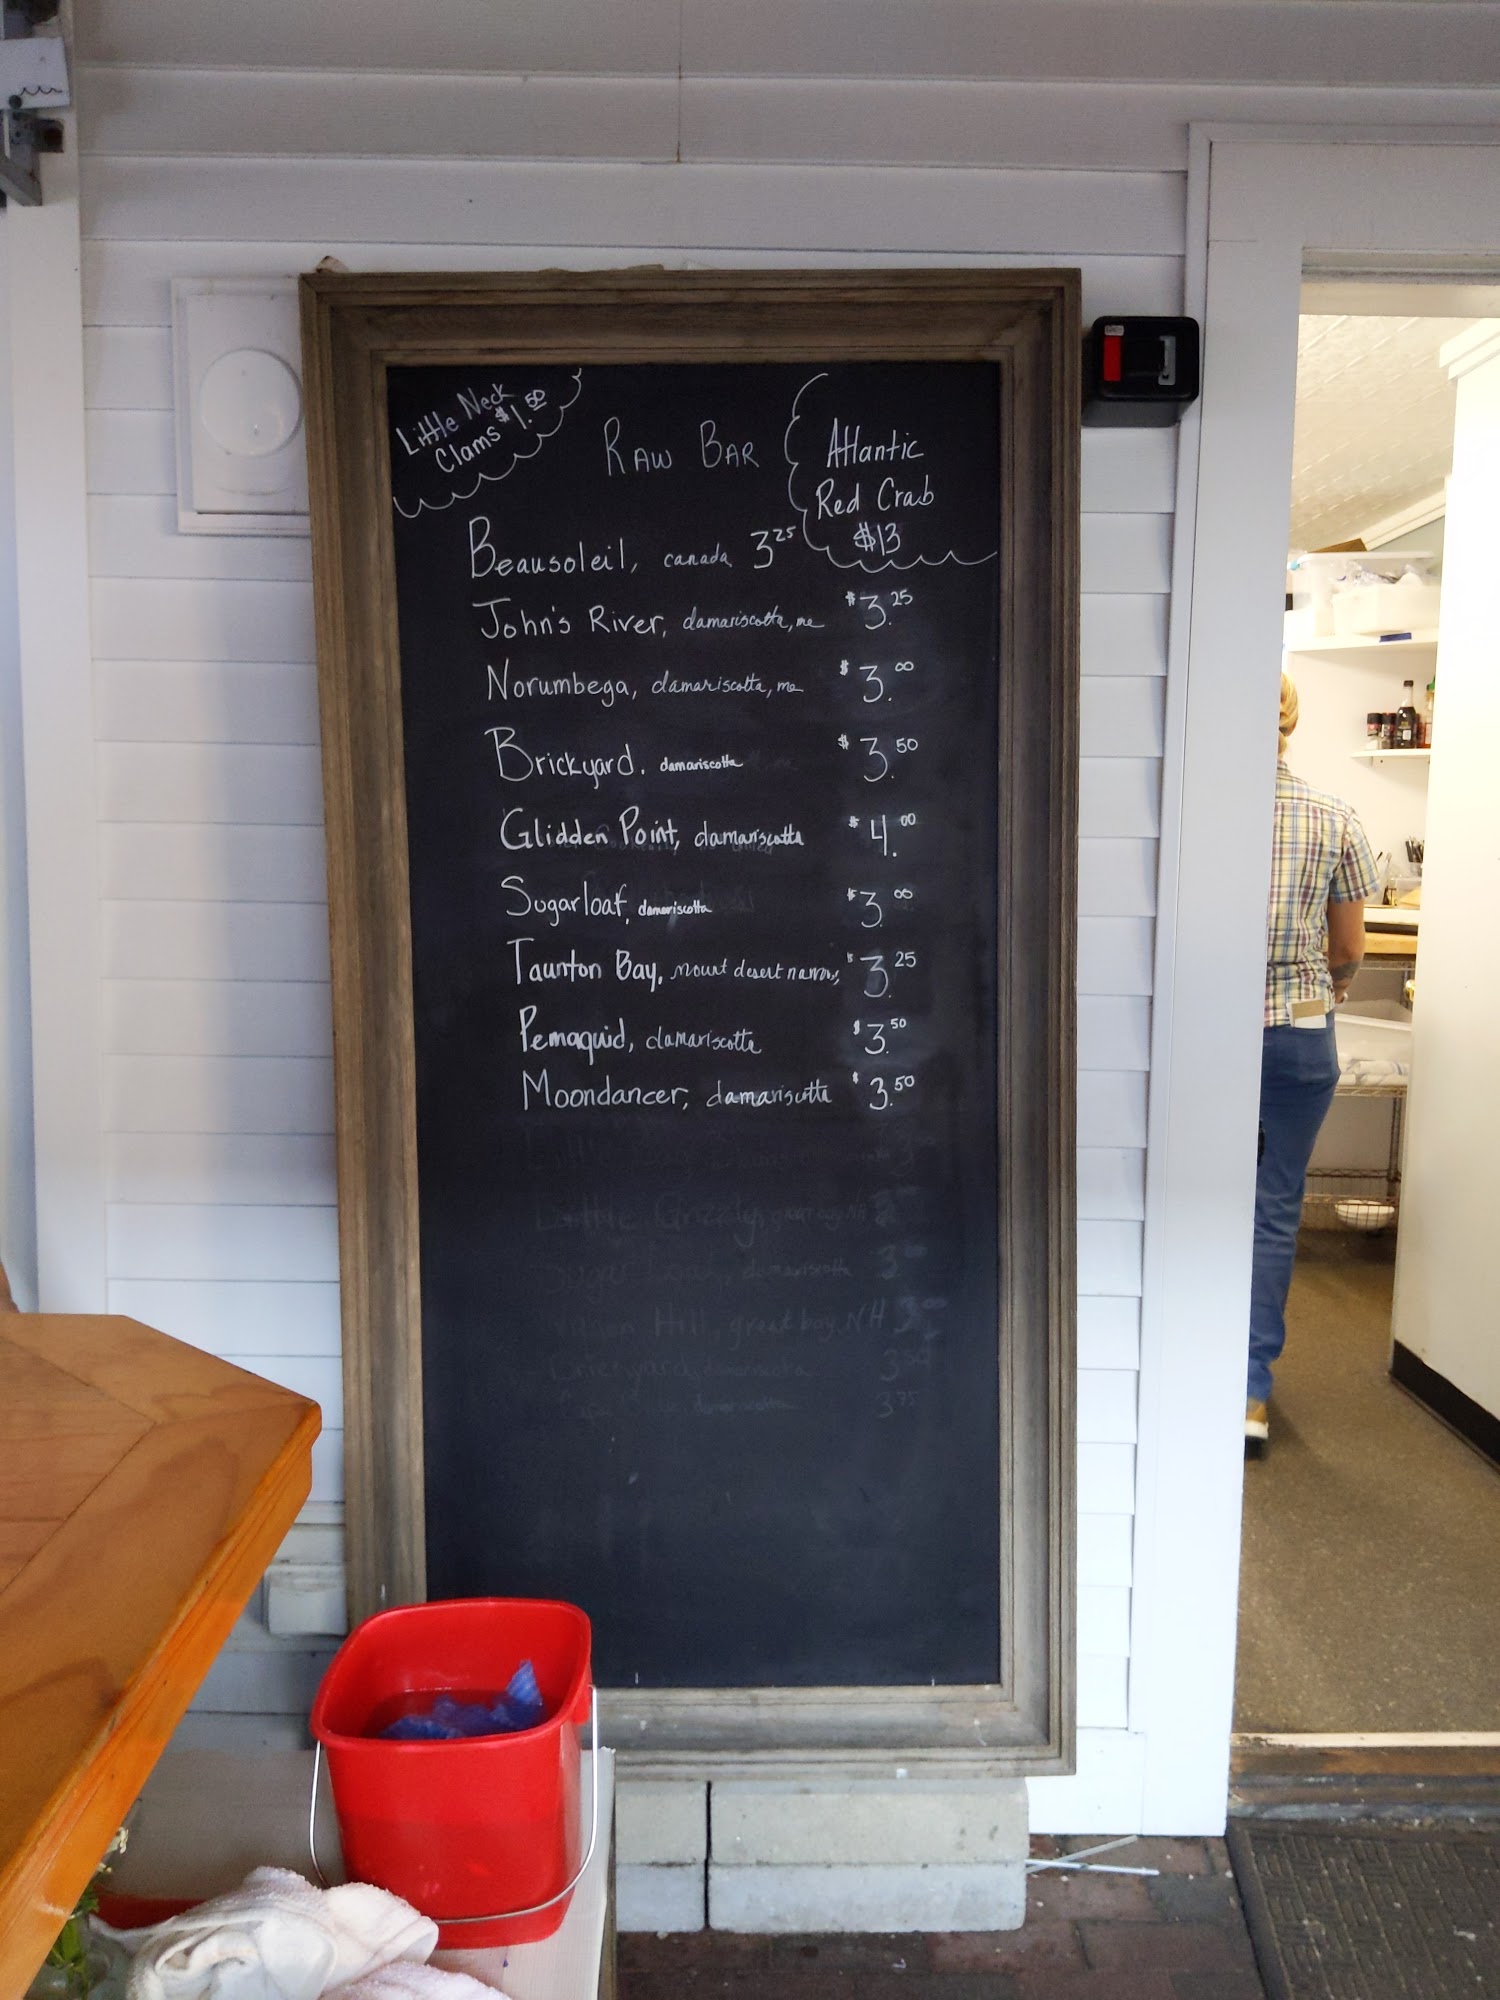 Little Neck
Clams $1.50
RAW BAR
Atlantic
Red Crab
$13
Beausoleil, canada 3 25
John's River, damariscotta, me $3.25
Norumbega, damariscotta, me $3.00
Brickyard. damariscotta $3.50
Glidden Point, damariscotta $4.00
Sugarloaf, damariscotta $3.00
Taunton Bay, mount desert narrows, $3.25
Pemaquid, damariscotta $3.50
Moondancer, damariscotta $3.50
Little Grizzly, great bay, NH
Sugar Loaf, damariscotta 3.00
Hill, great bay, NH 3.00
damariscotta 3.50
damariscotta 3.75